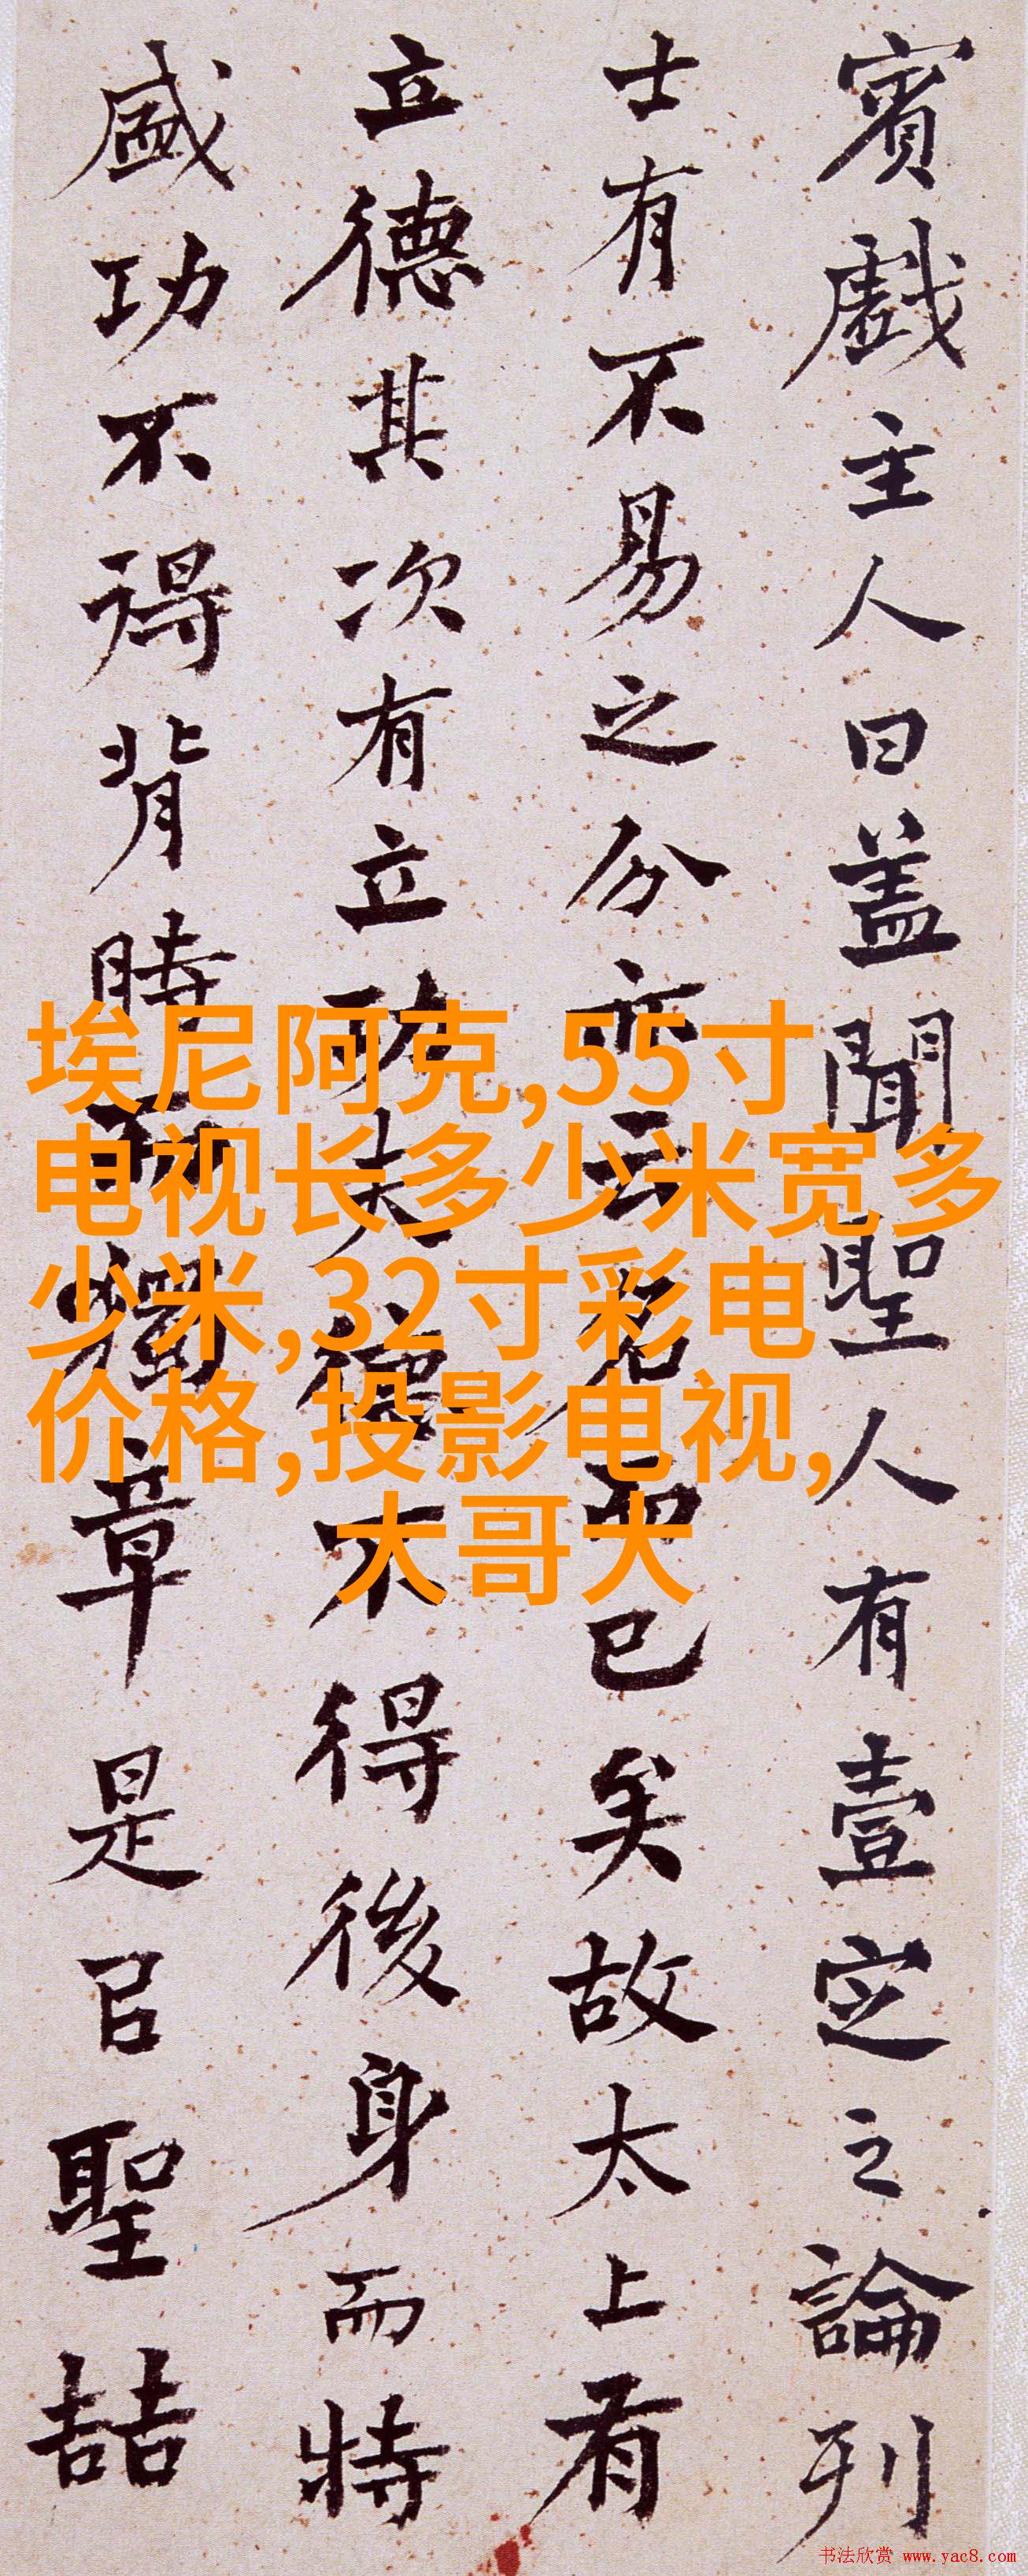 賓戲主人曰盖聞聖人有壹定之論列
士有不易之分亦云名而已矣故太上有
立德其次有立功夫德不得後身而特
盛功不得背時而獨章是㠯聖喆
埃尼阿克,55寸
电视长多少米宽多
少米,32寸彩电
价格,投影电视,
大哥大
书法欣赏 www.yac8.com